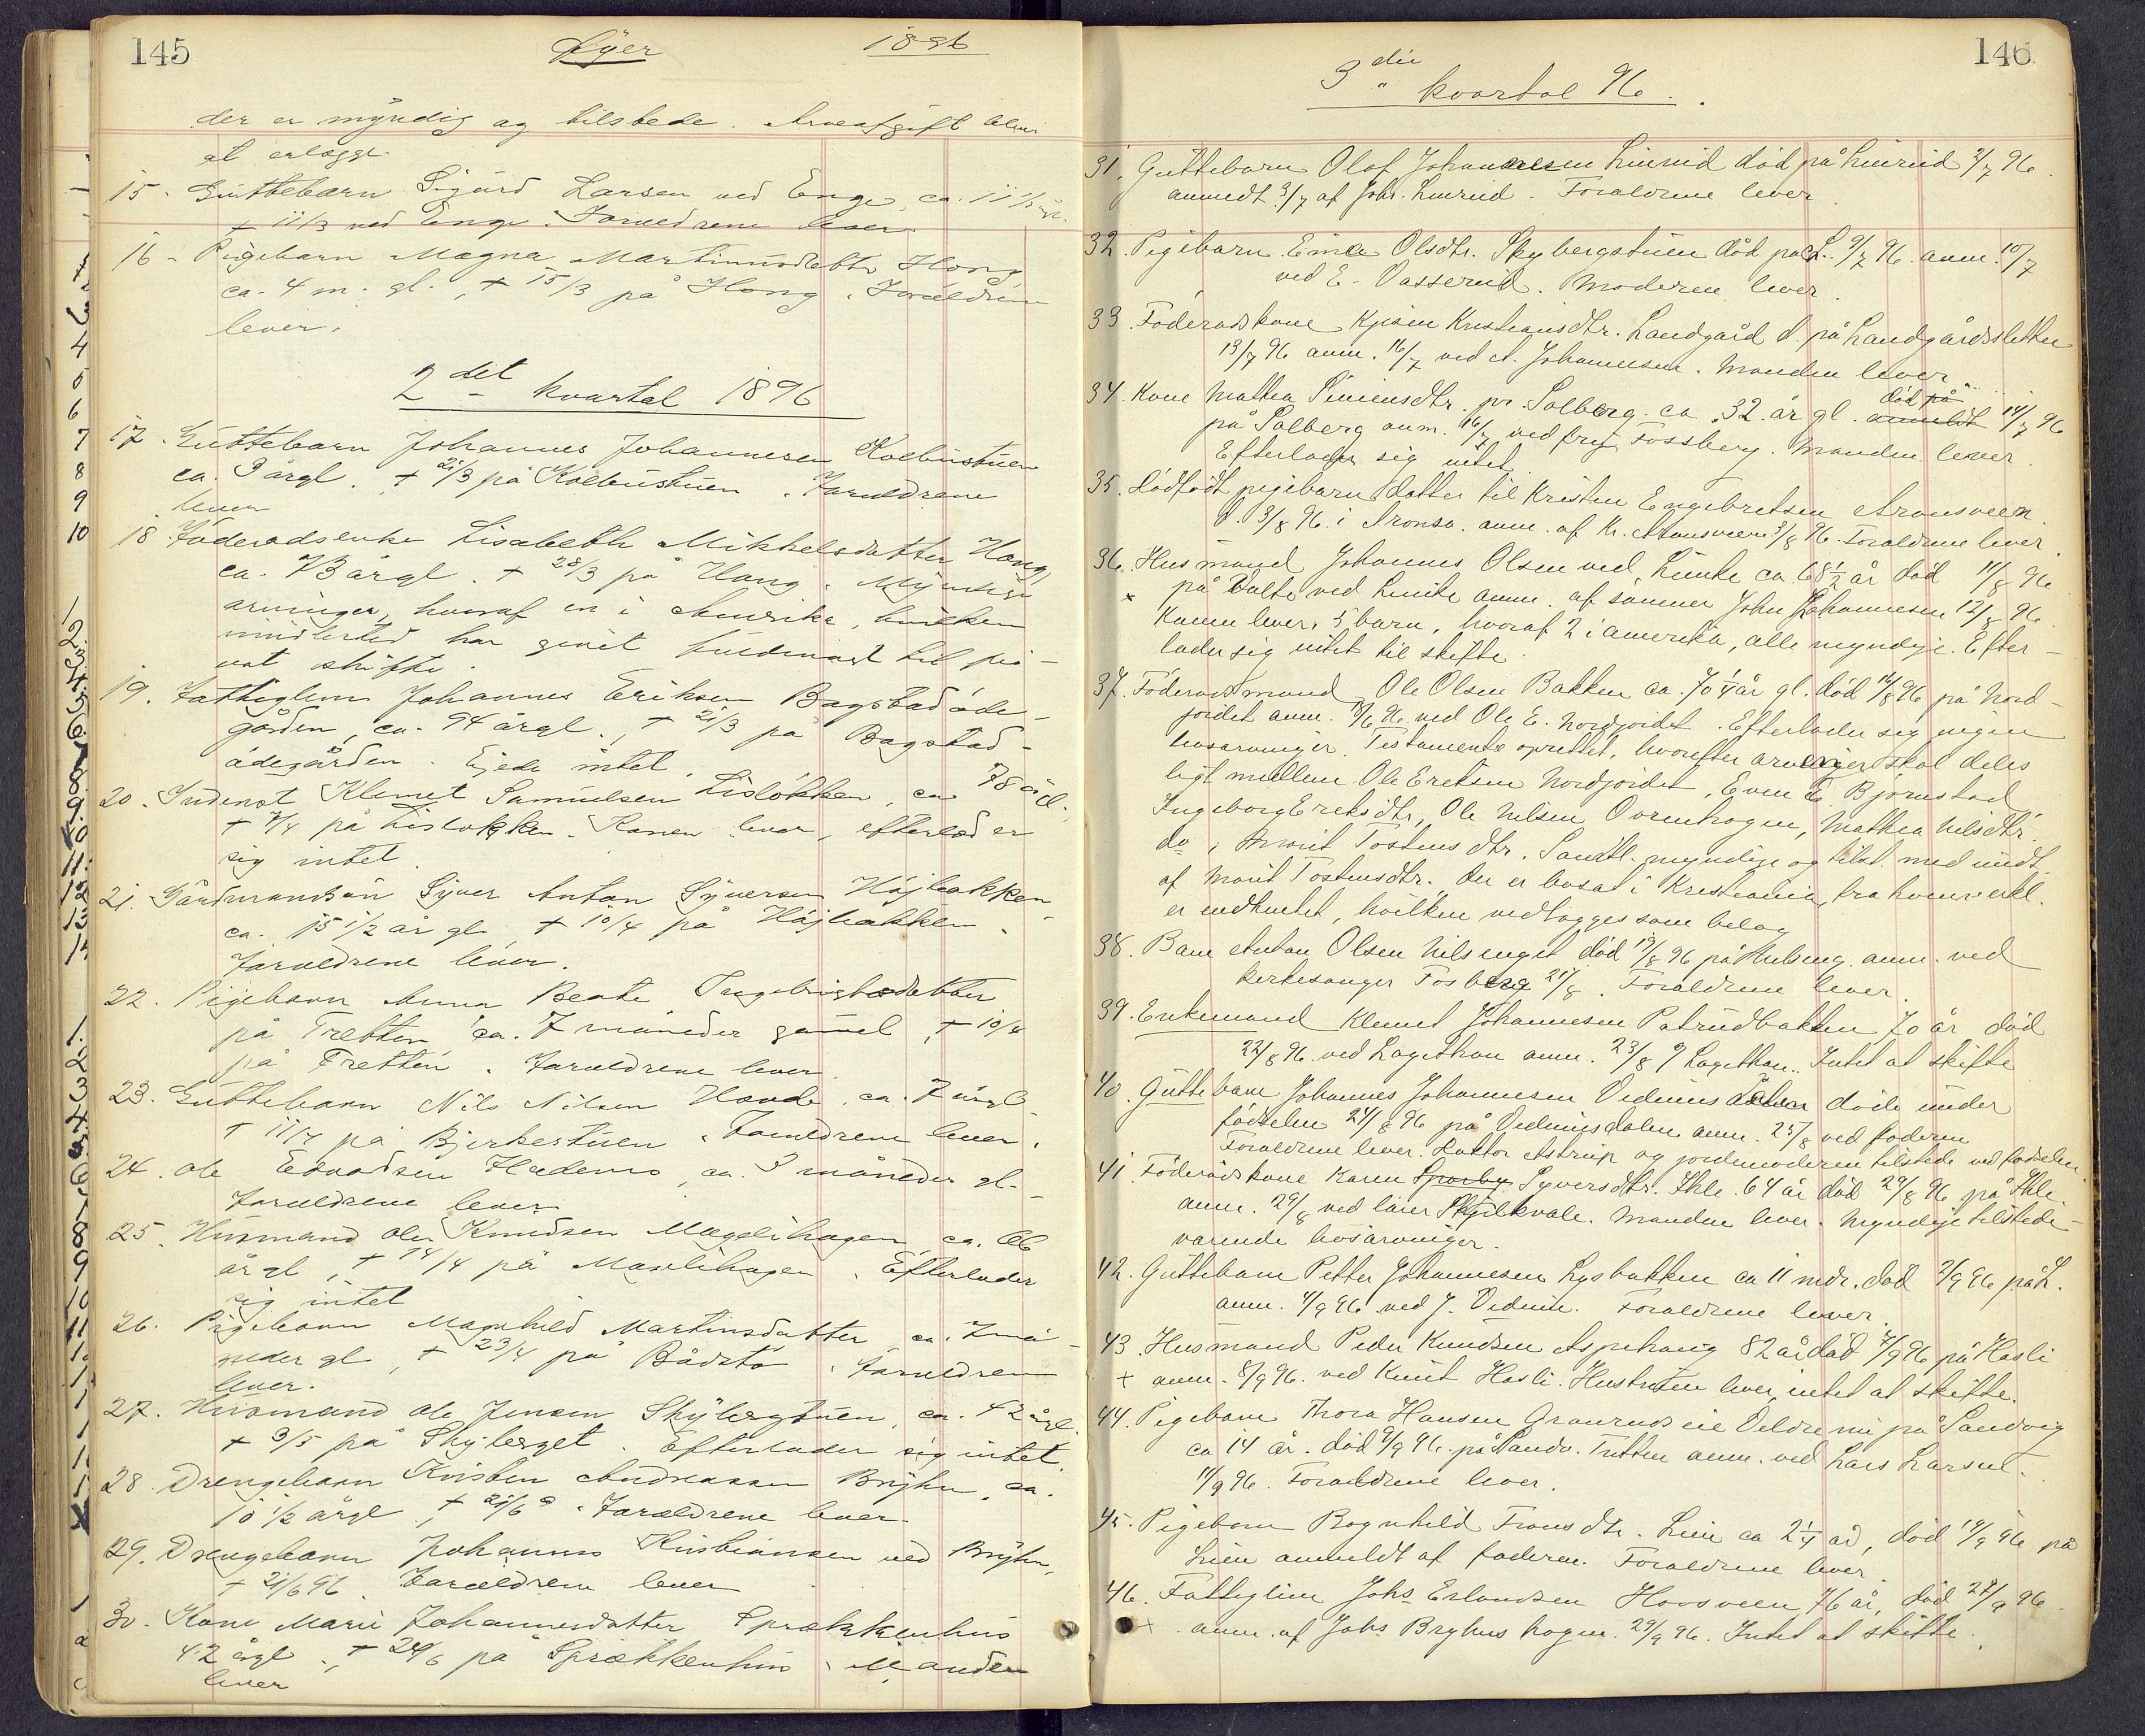 145
Øÿer
1896
der er mÿndig og tilstede. Arveafgift bliver
at erlægge
15. Gutteba​rn Sigurd Larsen ved Enge, ca. 11 1/2 år
+ 11/3 ved Enge. Foreldrene lever
16 - Pigebarn Magna Martinusdatter Hong
ca. 4 m. gl., + 15/3 på Hong. Foreldrene
lever.
2det kvartal 1896
17. Guttebarn Johannes Johannesen Kolbustuen
ca. 3 årgl. + 21/3 på Kolbustuen. Foreldrene
lever
18 Föderadsenke Lisabeth Mikkelsdatter Hong,
ca. 73 årgl. + 28/3 på Hong. Mÿndige
arvinger, hvoraf en i Amerika, hvilken
imidlertid har givet fuldmagt til pri-
vat skifte.
19. Fattiglem Johannes Eriksen Bagstadöde-
gården, ca. 94 årgl., + 21/3 på Bagstad-
ödegården. Ejede intet.
20. Inderst Klemet Samuelsen Lislökken, ca 78 årl.
+ 7/4 på Lislökken. Konen lever, efterlader
sig intet.
21. Gårdmandsön Sÿver Anton Sÿversen Höjbakken
ca. 15 1/2 år gl + 10/4 på Höjbakken.
Foreldrene lever.
22. Pigebarn Anna Beate Ingebrigtsdatter
på Tretten ca. 7 måneder gamel, + 10/4
på Tretten. Foreldrene lever.
23. Guttebarn Nils Nilsen Hovde, ca. 7 årgl
+ 11/4 på Bjerkestuen. Foreldrene lever.
24. ole Edvardsen Hademo, ca. 3 måneder gl.
Foreldrene lever
25. Husmand ole Knudsen Magelihagen ca. 66
år gl, + 14/4 på Magelihagen. Efterlader
sig intet
26. Pigebarn Magnhild Martinsdatter ca. 7 må-
neder gl, + 23/4 på Bådstö. Foreldrene
lever.
27. Husmand ole Jensen Skÿbergstuen, ca. 42 årgl.
+ 3/5 på Skÿberget. Efterlader sig intet.
28. Drengebarn Kristen Andreasen Brÿhn, ca.
10 1/2 årgl, + 21/6. Foreldrene lever.
29. Drengebarn Johannes Kristiansen ved Brÿhn,
+ 21/6 96. Foreldrene lever
30. Kone Marie Johannesdatter Sprækkenhus
42 årgl., + 24/6 på Sprækkenhus. Manden
lever
146
3die kvartal 96.
31. Guttebarn Olof Johannesen Linrud död på Linrud 2/7 96.
anmedt 3/7 af Johs. Linrud. Foraldrene lever.
32. Pigebarn Emma Olsdtr. Skybergstuen död på S. 9/7 96. anm. 10/7
ved E. Vasserud. Moderen lever.
33. Föderadskone Kjersti Kristiansdtr. Landgård d. på Landgårdssletten
13/7 96 anm. 16/7 ved A. Johannesen. Manden lever
34. Kone Mathea Simensdtr. pr. Solberg ca. 32 år gl. anmeldt död på 14/7 96
på Solberg anm. 16/7 ved fru Fossberg. Manden lever.
Efterlader sig intet.
35. Dödfödt pigebarn datter til Kristen Engebretsen Aronsveen
d. 3/8 96. i Aronsv. anm. af Kr. Aronsveen 3/8 96. Foraldrene lever.
36. Husmand Johannes Olsen ved Linde ca. 68 1/2 år död 11/8 96
x på Volte ved Linde anm. af sönnen John Johannesen 12/8 96.
Konen lever, 5 barn, hvoraf 2 i amerika, alle myndige. Efter-
lader sig intet til skifte.
37. Föderadsmand Ole Olsen Bakken ca. 70 1/4 år gl. död 16/8 96 på Nord-
jordet anm. 18/8 96 ved Ole E. Nordjordet. Efterlader sig ingen
livsarvinger. Testamente oprettet, hvorefter arvinger skal deles
ligt mellem Ole Eriksen Nordjordet, Even E. Bjørnstad,
Ingeborg Eriksdtr, Ole Nilsen Overhagen, Mathea Nilsdtr.
do, Marit Tostensdtr. Samtl. myndige og tilst. med undt.
af Marit Tostensdtr. der er bosat i Kristiania, fra hvem erkl.
er indhentet, hvilken vedlægges som belag
38. Barn Anton Olsen Nilsenget död 19/8 96 på Nilseng. anm. ved
kirkesanger Fosberg 21/8. Foraldrene lever.
39. Enkemand Klemet Johannesen Patrudbakken 70 år död
22/8 96 ved Lagethon anm. 23/8 af Lagethon. Intet at skifte
40. Guttebarn Johannes Johannesen Vedumsdalen döde under
fødselen 24/8 96 på Vedumsdalen anm. 25/8 ved faderen
Foraldrene lever. Doktor Astrup og jordemoderen tilstede ved fødselen
41. Föderådskone Karen Sporby Syversdtr. Ihle. 64 år död 29/8 96 på Ihle
anm. 29/8 ved lærer Skjelkvale. Manden lever. Myndige tilstede-
værende livsarvinger.
42. Guttebarn Petter Johannesen Lysbakken ca 11 mdr. död 2/9 96 på L.
anm. 4/9 96 ved J. Vedum. Foraldrene lever.
43. Husmand Peder Knudsen Aspehaug 82 år död 7/9 96 på Hasli
+ anm. 8/9 96. ved Knut Hasli. Hustruen lever, intet at skifte.
44. Pigebarn Thora Hansen Granrudseie Veldre nu på Sandvig
ca 14 år. död 9/9 96. på Sandv. Tretten anm. ved Lars Larsen.
11/9 96. Foraldrene lever.
45. Pigebarn Ragnhild Fransdtr. Lien ca 2 1/4 år, död 19/9 96 på
Lien anmeldt af faderen. Foraldrene lever.
46. Fattiglem Johs Erlandsen Hovsveen 76 år, död 27/9 96.
x anm. af Johs Bryhnshagen. 29/9 96. Intet at skifte.